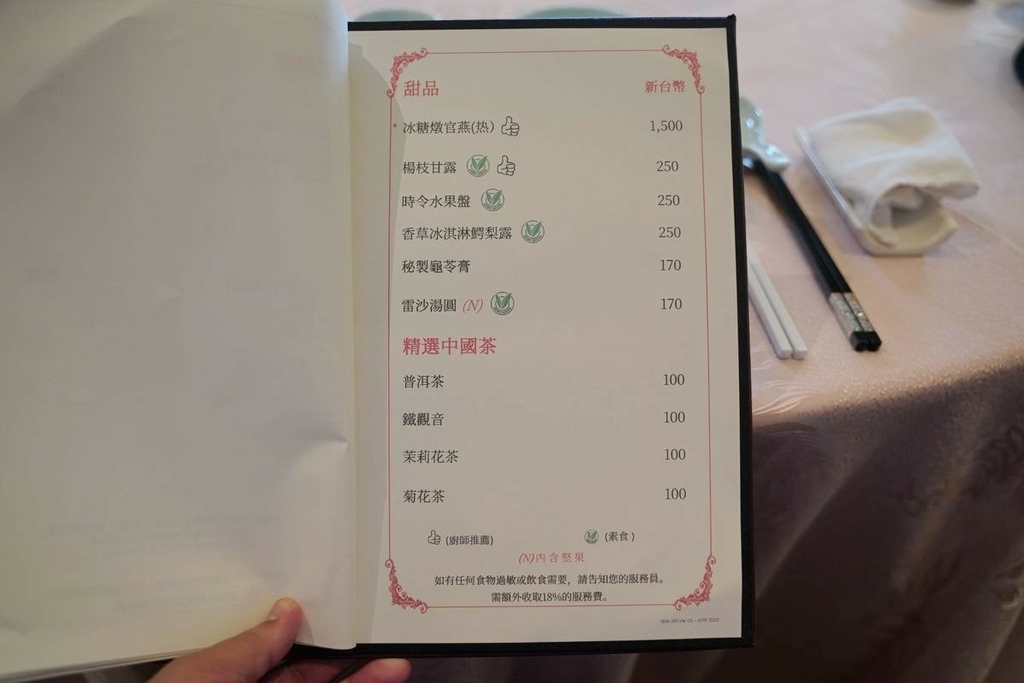 甜品 新台幣
* 冰糖燉官燕(热) 1,500
楊枝甘露 250
時令水果盤 250
香草冰淇淋鰐梨露 250
秘製龜苓膏 170
雷沙湯圓 (N) 170
精選中國茶
普洱茶 100
鐵觀音 100
茉莉花茶 100
菊花茶 100
(廚師推薦) (素食)
(N)內含堅果
如有任何食物過敏或飲食需要，請告知您的服務員。
需額外收取18%的服務費。